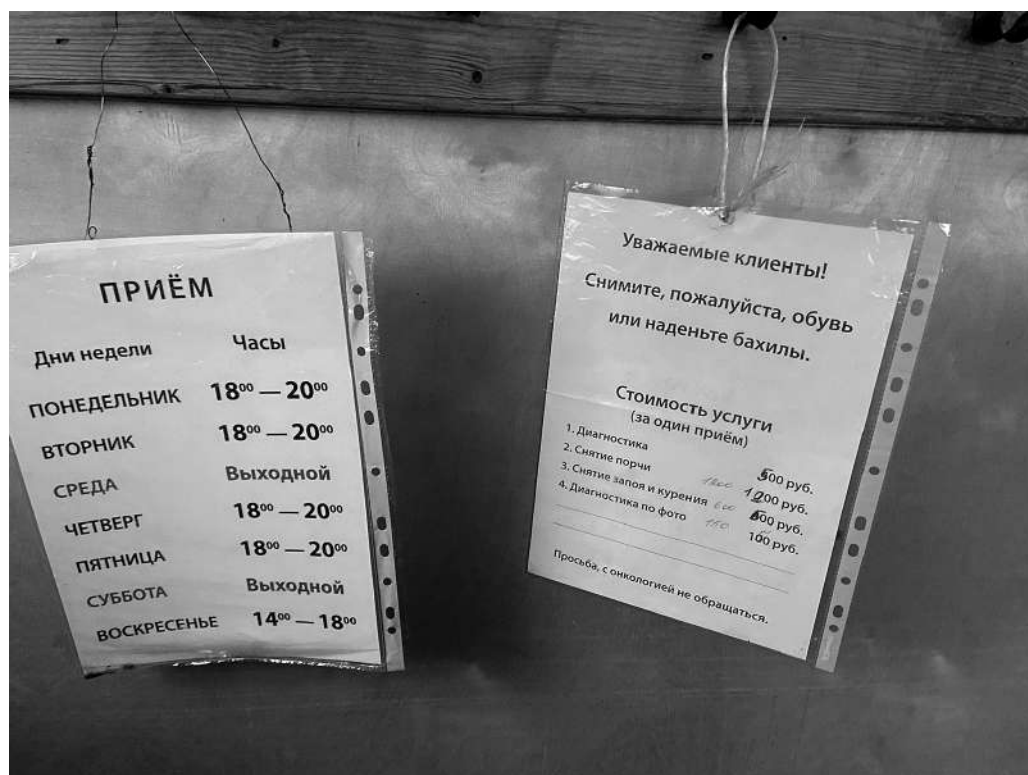 ПРИЁМ
Дни недели Часы
ПОНЕДЕЛЬНИК 18⁰⁰ — 20⁰⁰
ВТОРНИК 18⁰⁰ — 20⁰⁰
СРЕДА Выходной
ЧЕТВЕРГ 18⁰⁰ — 20⁰⁰
ПЯТНИЦА 18⁰⁰ — 20⁰⁰
СУББОТА Выходной
ВОСКРЕСЕНЬЕ 14⁰⁰ — 18⁰⁰
Уважаемые клиенты!
Снимите, пожалуйста, обувь
или наденьте бахилы.
Стоимость услуги
(за один приём)
1. Диагностика руб.
2. Снятие порчи руб.
3. Снятие запоя и курения 600 руб.
4. Диагностика по фото 150 100 руб.
Просьба, с онкологией не обращаться.